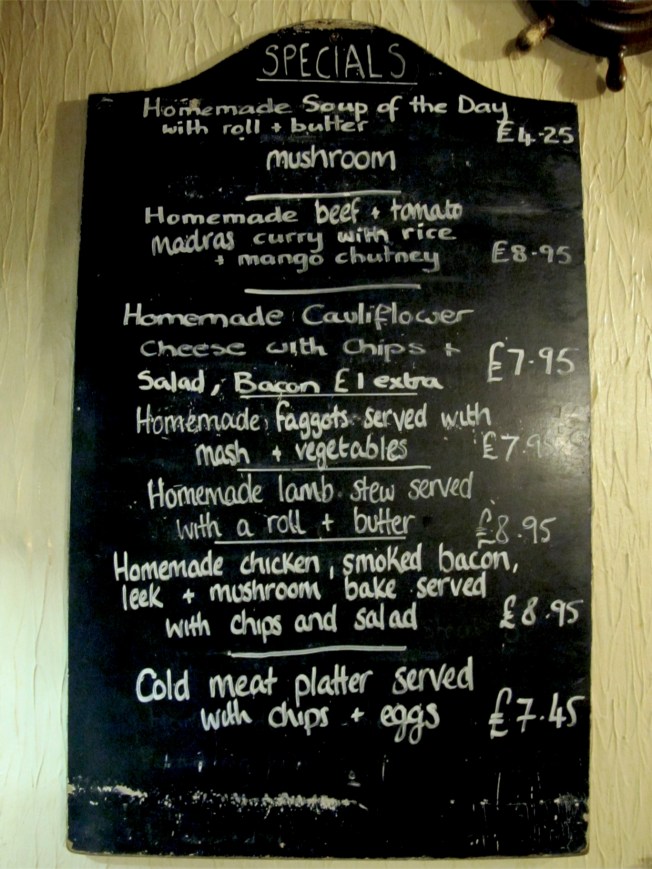 SPECIALS
Homemade Soup of the Day
with roll + butter £4.25
mushroom
Homemade beef + tomato
madras curry with rice
+ mango chutney £8.95
Homemade Cauliflower
Cheese with Chips + £7.95
Salad, Bacon £1 extra
Homemade faggots served with
mash + vegetables
Homemade lamb stew served
with a roll + butter £8.95
Homemade chicken, smoked bacon,
leek + mushroom bake served
with chips and salad £8.95
Cold meat platter served
with chips + eggs £7.45